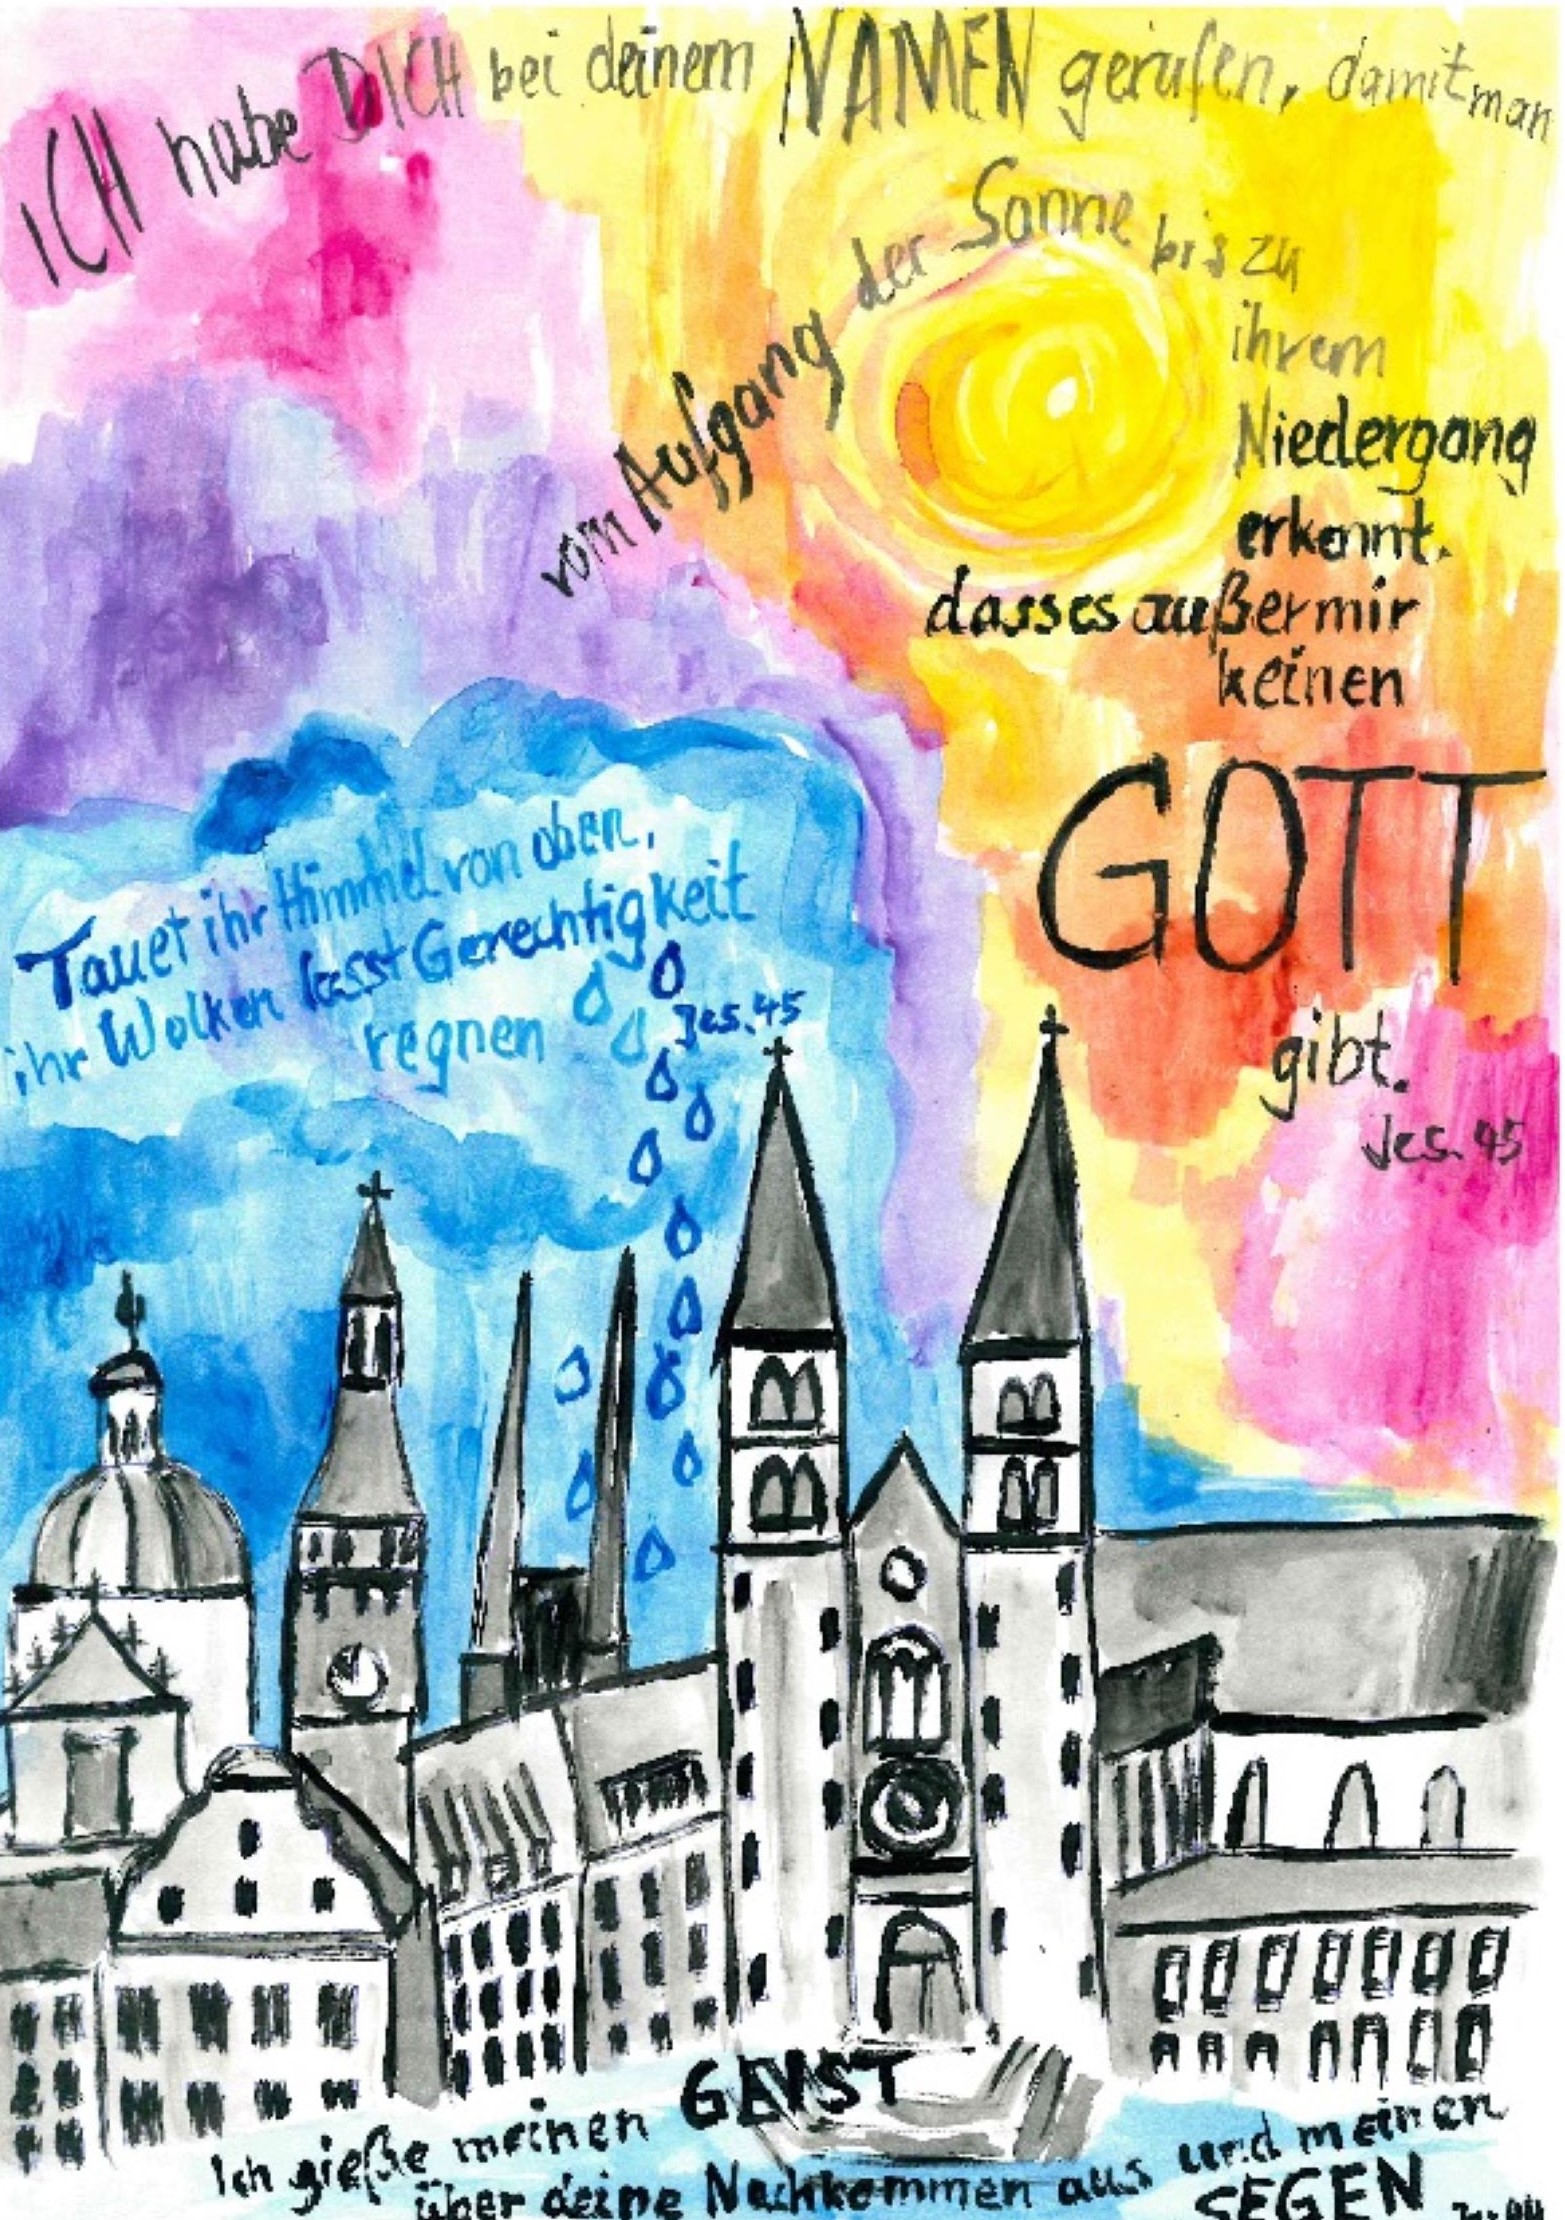 ICH habe DICH bei deinem NAMEN gerufen, damit man
vom Aufgang der Sonne bis zu
ihrem
Niedergang
erkennt,
dass es außer mir
keinen
GOTT
gibt.
Jes. 45
Tauet ihr Himmel von oben,
ihr Wolken lasst Gerechtigkeit
regnen
Jes. 45
Ich gieße meinen GEIST
über deine Nachkommen aus und meinen
SEGEN